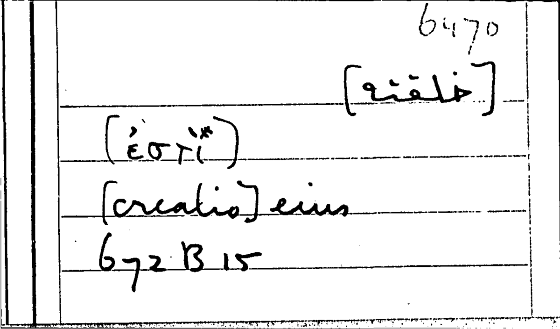 6470
[خلقته]
(ἐστὶ*)
[creatio] eius
672 B 15